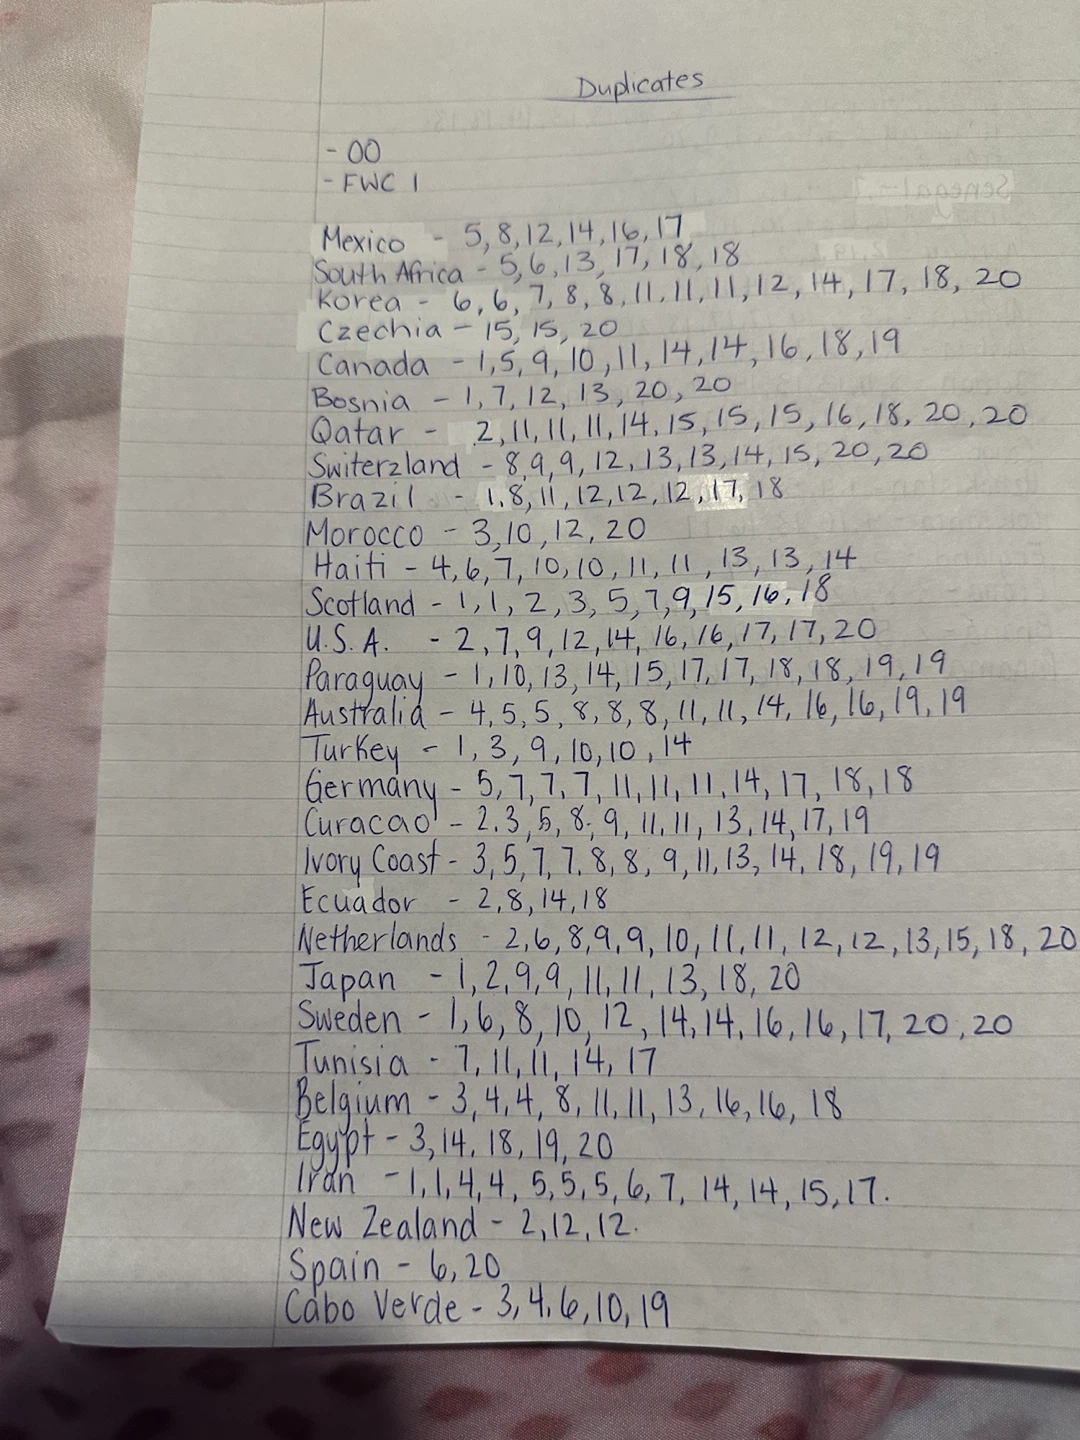 Duplicates
- 00
- FWC 1
Mexico - 5, 8, 12, 14, 16, 17
South Africa - 5, 6, 13, 17, 18, 18
Korea - 6, 6, 7, 8, 8, 11, 11, 11, 12, 14, 17, 18, 20
Czechia - 15, 15, 20
Canada - 1, 5, 9, 10, 11, 14, 14, 16, 18, 19
Bosnia - 1, 7, 12, 13, 20, 20
Qatar - 2, 11, 11, 11, 14, 15, 15, 15, 16, 18, 20, 20
Switerzland - 8, 9, 9, 12, 13, 13, 14, 15, 20, 20
Brazil - 1, 8, 11, 12, 12, 12, 17, 18
Morocco - 3, 10, 12, 20
Haiti - 4, 6, 7, 10, 10, 11, 11, 13, 13, 14
Scotland - 1, 1, 2, 3, 5, 7, 9, 15, 16, 18
U.S.A. - 2, 7, 9, 12, 14, 16, 16, 17, 17, 20
Paraguay - 1, 10, 13, 14, 15, 17, 17, 18, 18, 19, 19
Australia - 4, 5, 5, 8, 8, 8, 11, 11, 14, 16, 16, 19, 19
Turkey - 1, 3, 9, 10, 10, 14
Germany - 5, 7, 7, 7, 11, 11, 11, 14, 17, 18, 18
Curacao - 2, 3, 5, 8, 9, 11, 11, 13, 14, 17, 19
Ivory Coast - 3, 5, 7, 7, 8, 8, 9, 11, 13, 14, 18, 19, 19
Ecuador - 2, 8, 14, 18
Netherlands - 2, 6, 8, 9, 9, 10, 11, 11, 12, 12, 13, 15, 18, 20
Japan - 1, 2, 9, 9, 11, 11, 13, 18, 20
Sweden - 1, 6, 8, 10, 12, 14, 14, 16, 16, 17, 20, 20
Tunisia - 7, 11, 11, 14, 17
Belgium - 3, 4, 4, 8, 11, 11, 13, 16, 16, 18
Egypt - 3, 14, 18, 19, 20
Iran - 1, 1, 4, 4, 5, 5, 5, 6, 7, 14, 14, 15, 17.
New Zealand - 2, 12, 12.
Spain - 6, 20
Cabo Verde - 3, 4, 6, 10, 19